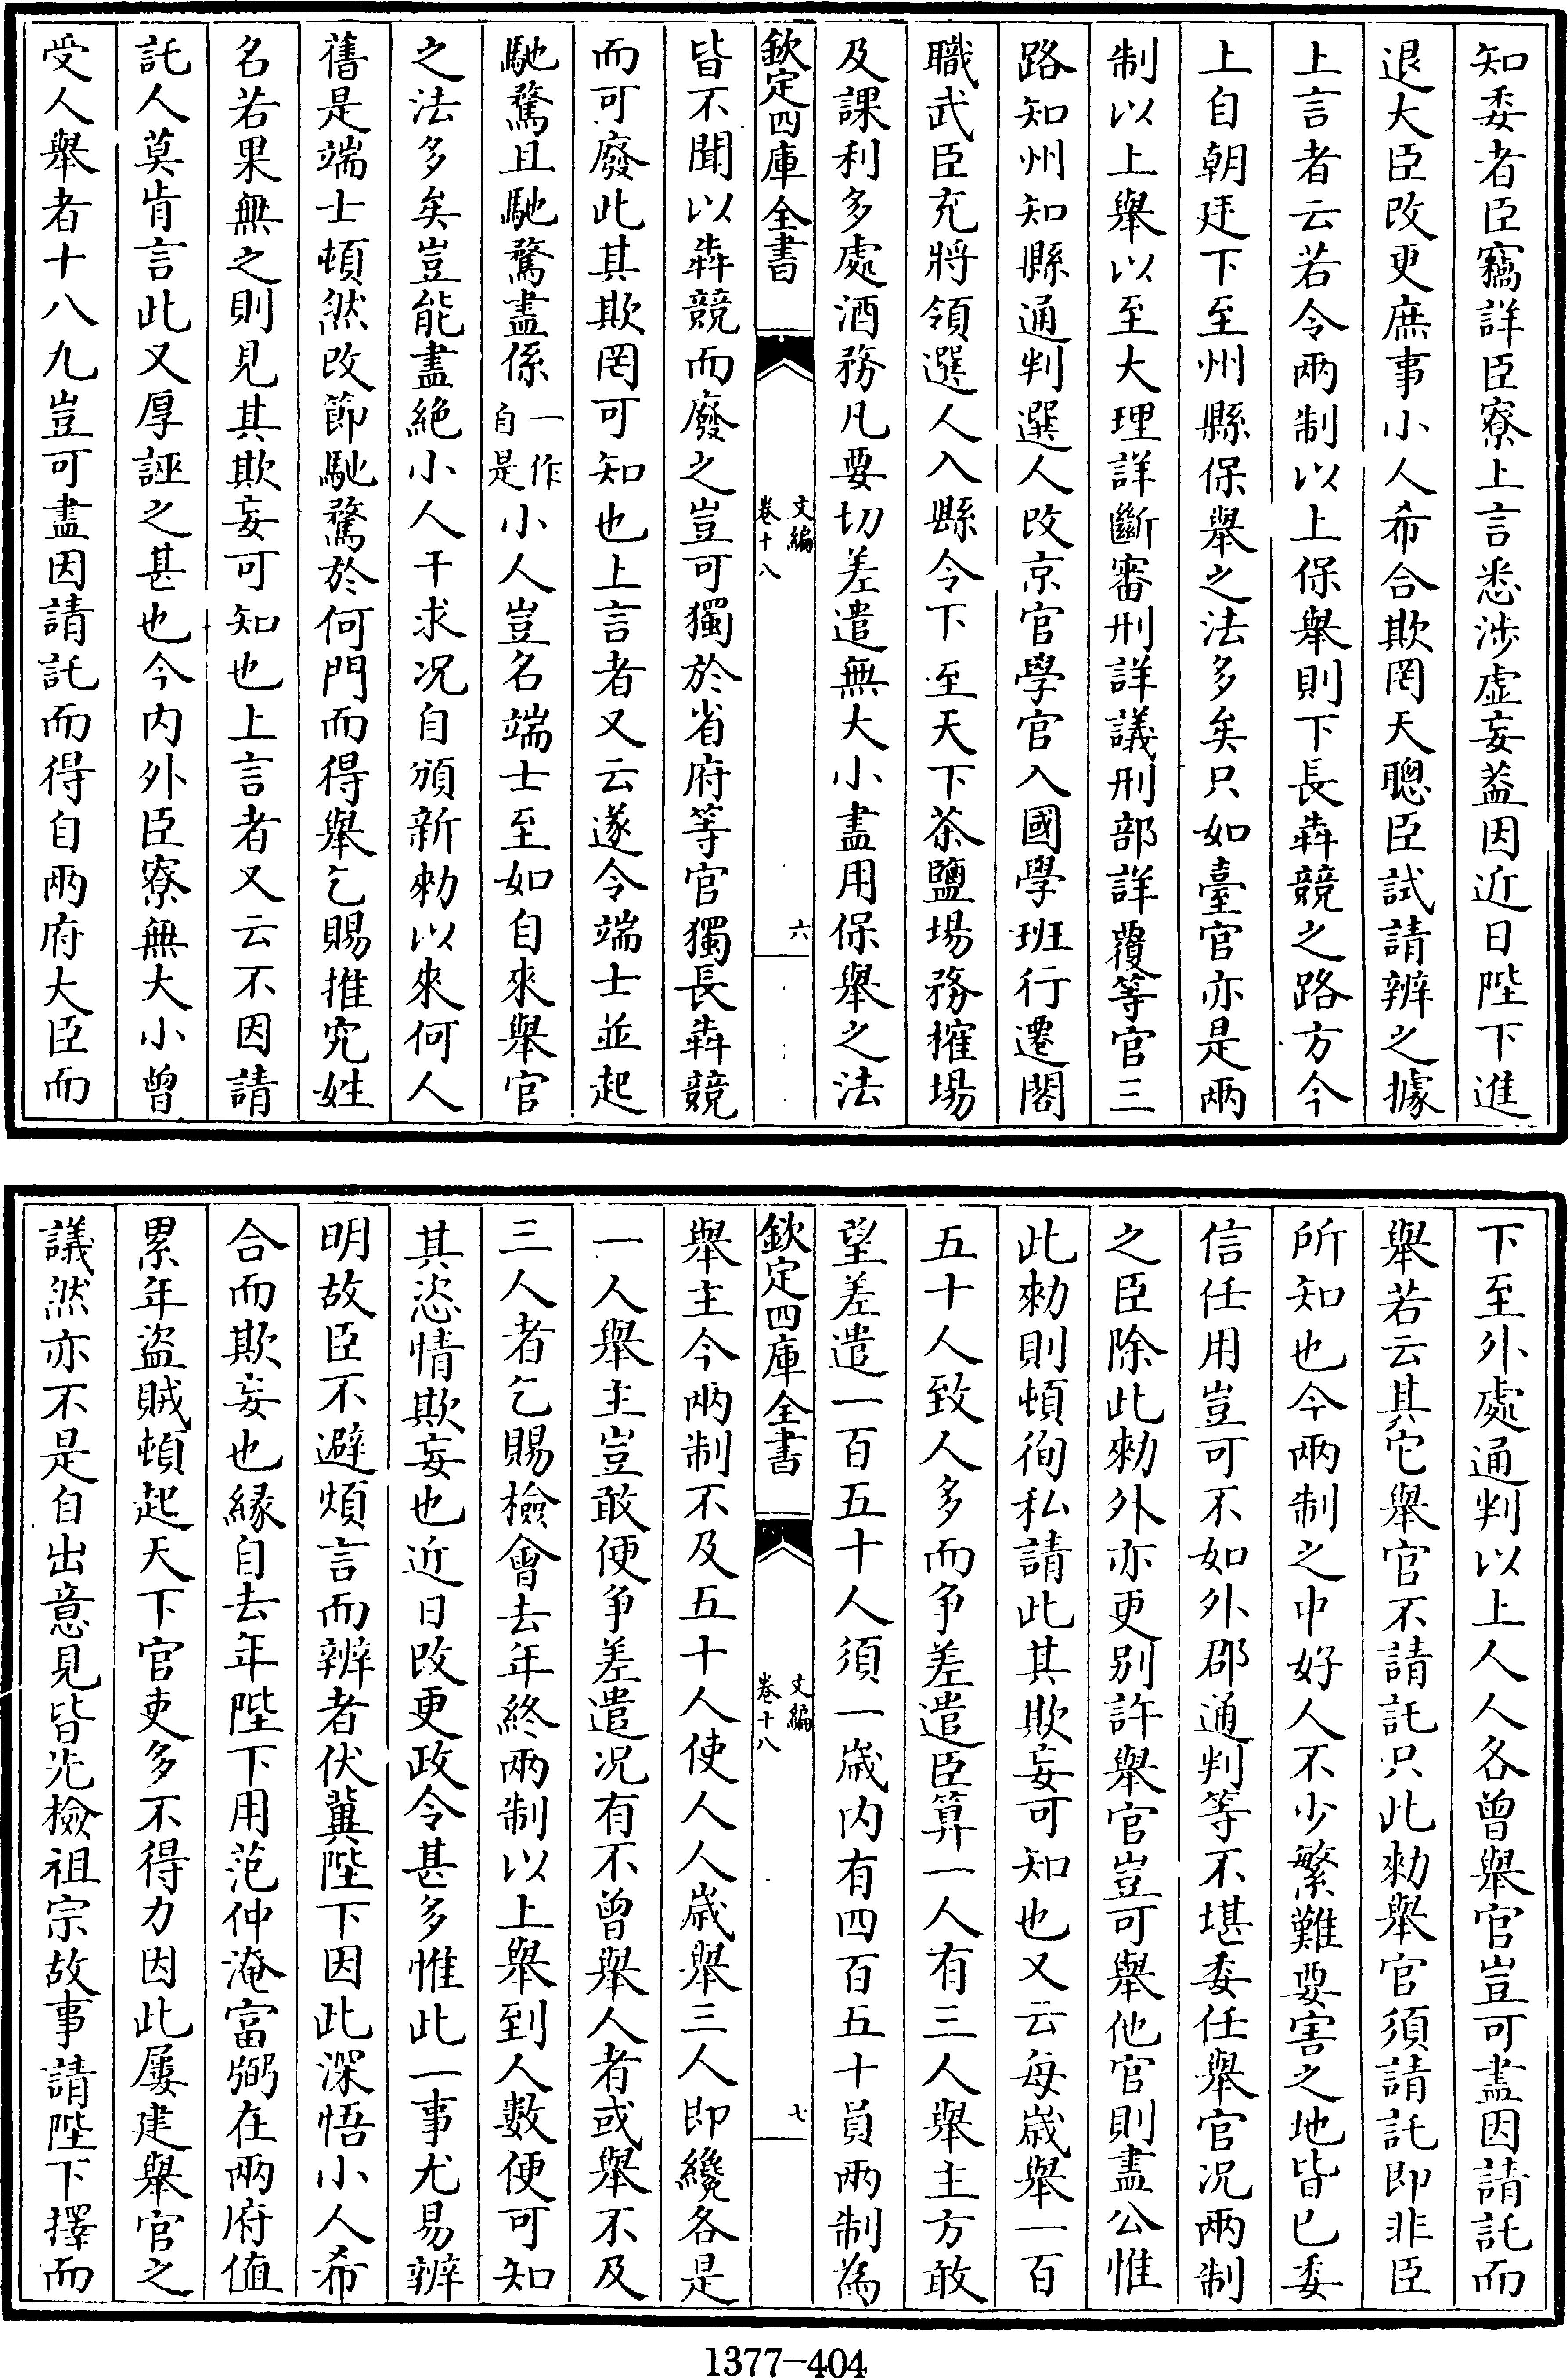 知委者臣竊詳臣寮上言悉涉虛妄葢因近日陛下進
退大臣改更庶事小人希合欺罔天聰臣試請辨之據
上言者云若令兩制以上保舉則下長犇競之路方今
上自朝廷下至州縣保舉之法多矣只如臺官亦是兩
制以上舉以至大理詳斷審刑詳議刑部詳覆等官三
路知州知縣通判選人改京官學官入國學班行遷閣
職武臣充將領選人入縣令下至天下茶鹽場務搉場
及課利多處酒務凡要切差遣無大小盡用保舉之法
欽定四庫全書
文編
卷十八
六
皆不聞以犇競而廢之豈可獨於省府等官獨長犇競
而可廢此其欺罔可知也上言者又云遂令端士並起
馳騖且馳騖盡係一作自是小人豈名端士至如自來舉官
之法多矣豈能盡絶小人干求况自頒新勅以來何人
舊是端士頓然改節馳騖於何門而得舉乞賜推究姓
名若果無之則見其欺妄可知也上言者又云不因請
託人莫肯言此又厚誣之甚也今内外臣寮無大小曾
受人舉者十八九豈可盡因請託而得自兩府大臣而
下至外處通判以上人人各曾舉官豈可盡因請託而
舉若云其它舉官不請託只此勅舉官須請託即非臣
所知也今兩制之中好人不少繁難要害之地皆已委
信任用豈可不如外郡通判等不堪委任舉官况兩制
之臣除此勅外亦更别許舉官豈可舉他官則盡公惟
此勅則頓徇私請此其欺妄可知也又云每歳舉一百
五十人致人多而争差遣臣算一人有三人舉主方敢
望差遣一百五十人須一歳内有四百五十員兩制為
欽定四庫全書
文編
卷十八
七
舉主今兩制不及五十人使人人歳舉三人即纔各是
一人舉主豈敢便争差遣况有不曾舉人者或舉不及
三人者乞賜檢會去年終兩制以上舉到人數便可知
其恣情欺妄也近日改更政令甚多惟此一事尤易辨
明故臣不避煩言而辨者伏冀陛下因此深悟小人希
合而欺妄也縁自去年陛下用范仲淹富弼在兩府值
累年盜賊頓起天下官吏多不得力因此屢建舉官之
議然亦不是自出意見皆先檢祖宗故事請陛下擇而
1377-404